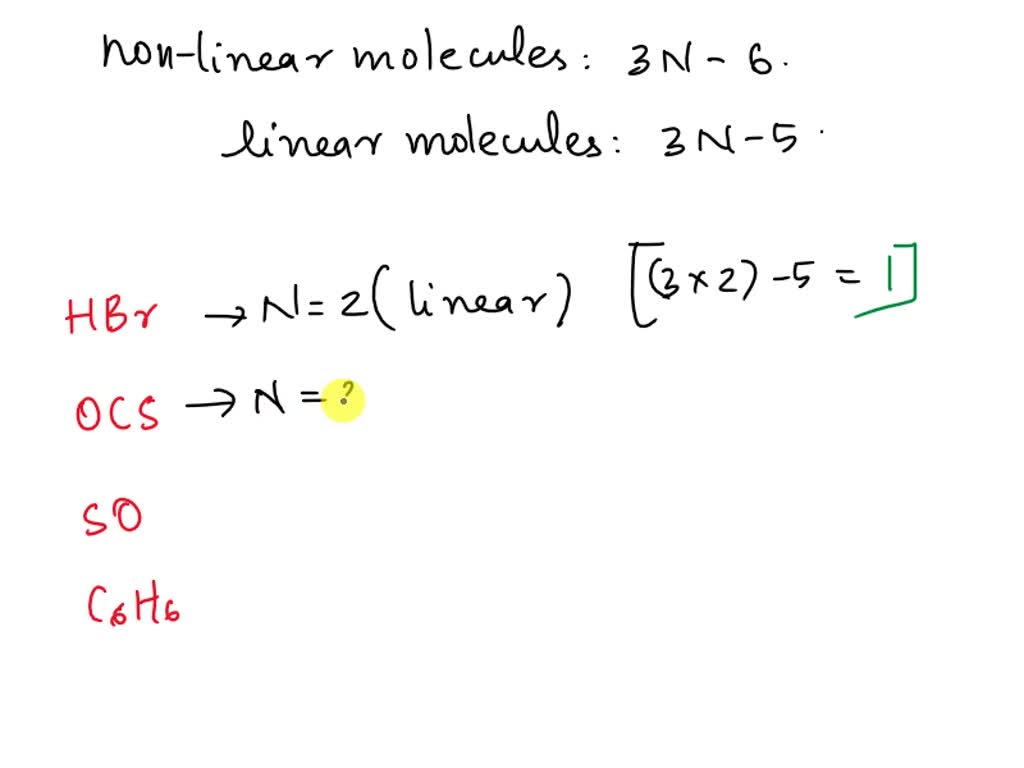 non-linear molecules: 3N - 6.
linear molecules: 3N - 5.
HBr → N = 2 (linear) [(3 × 2) - 5 = 1]
OCS → N = ?
SO
C₆H₆